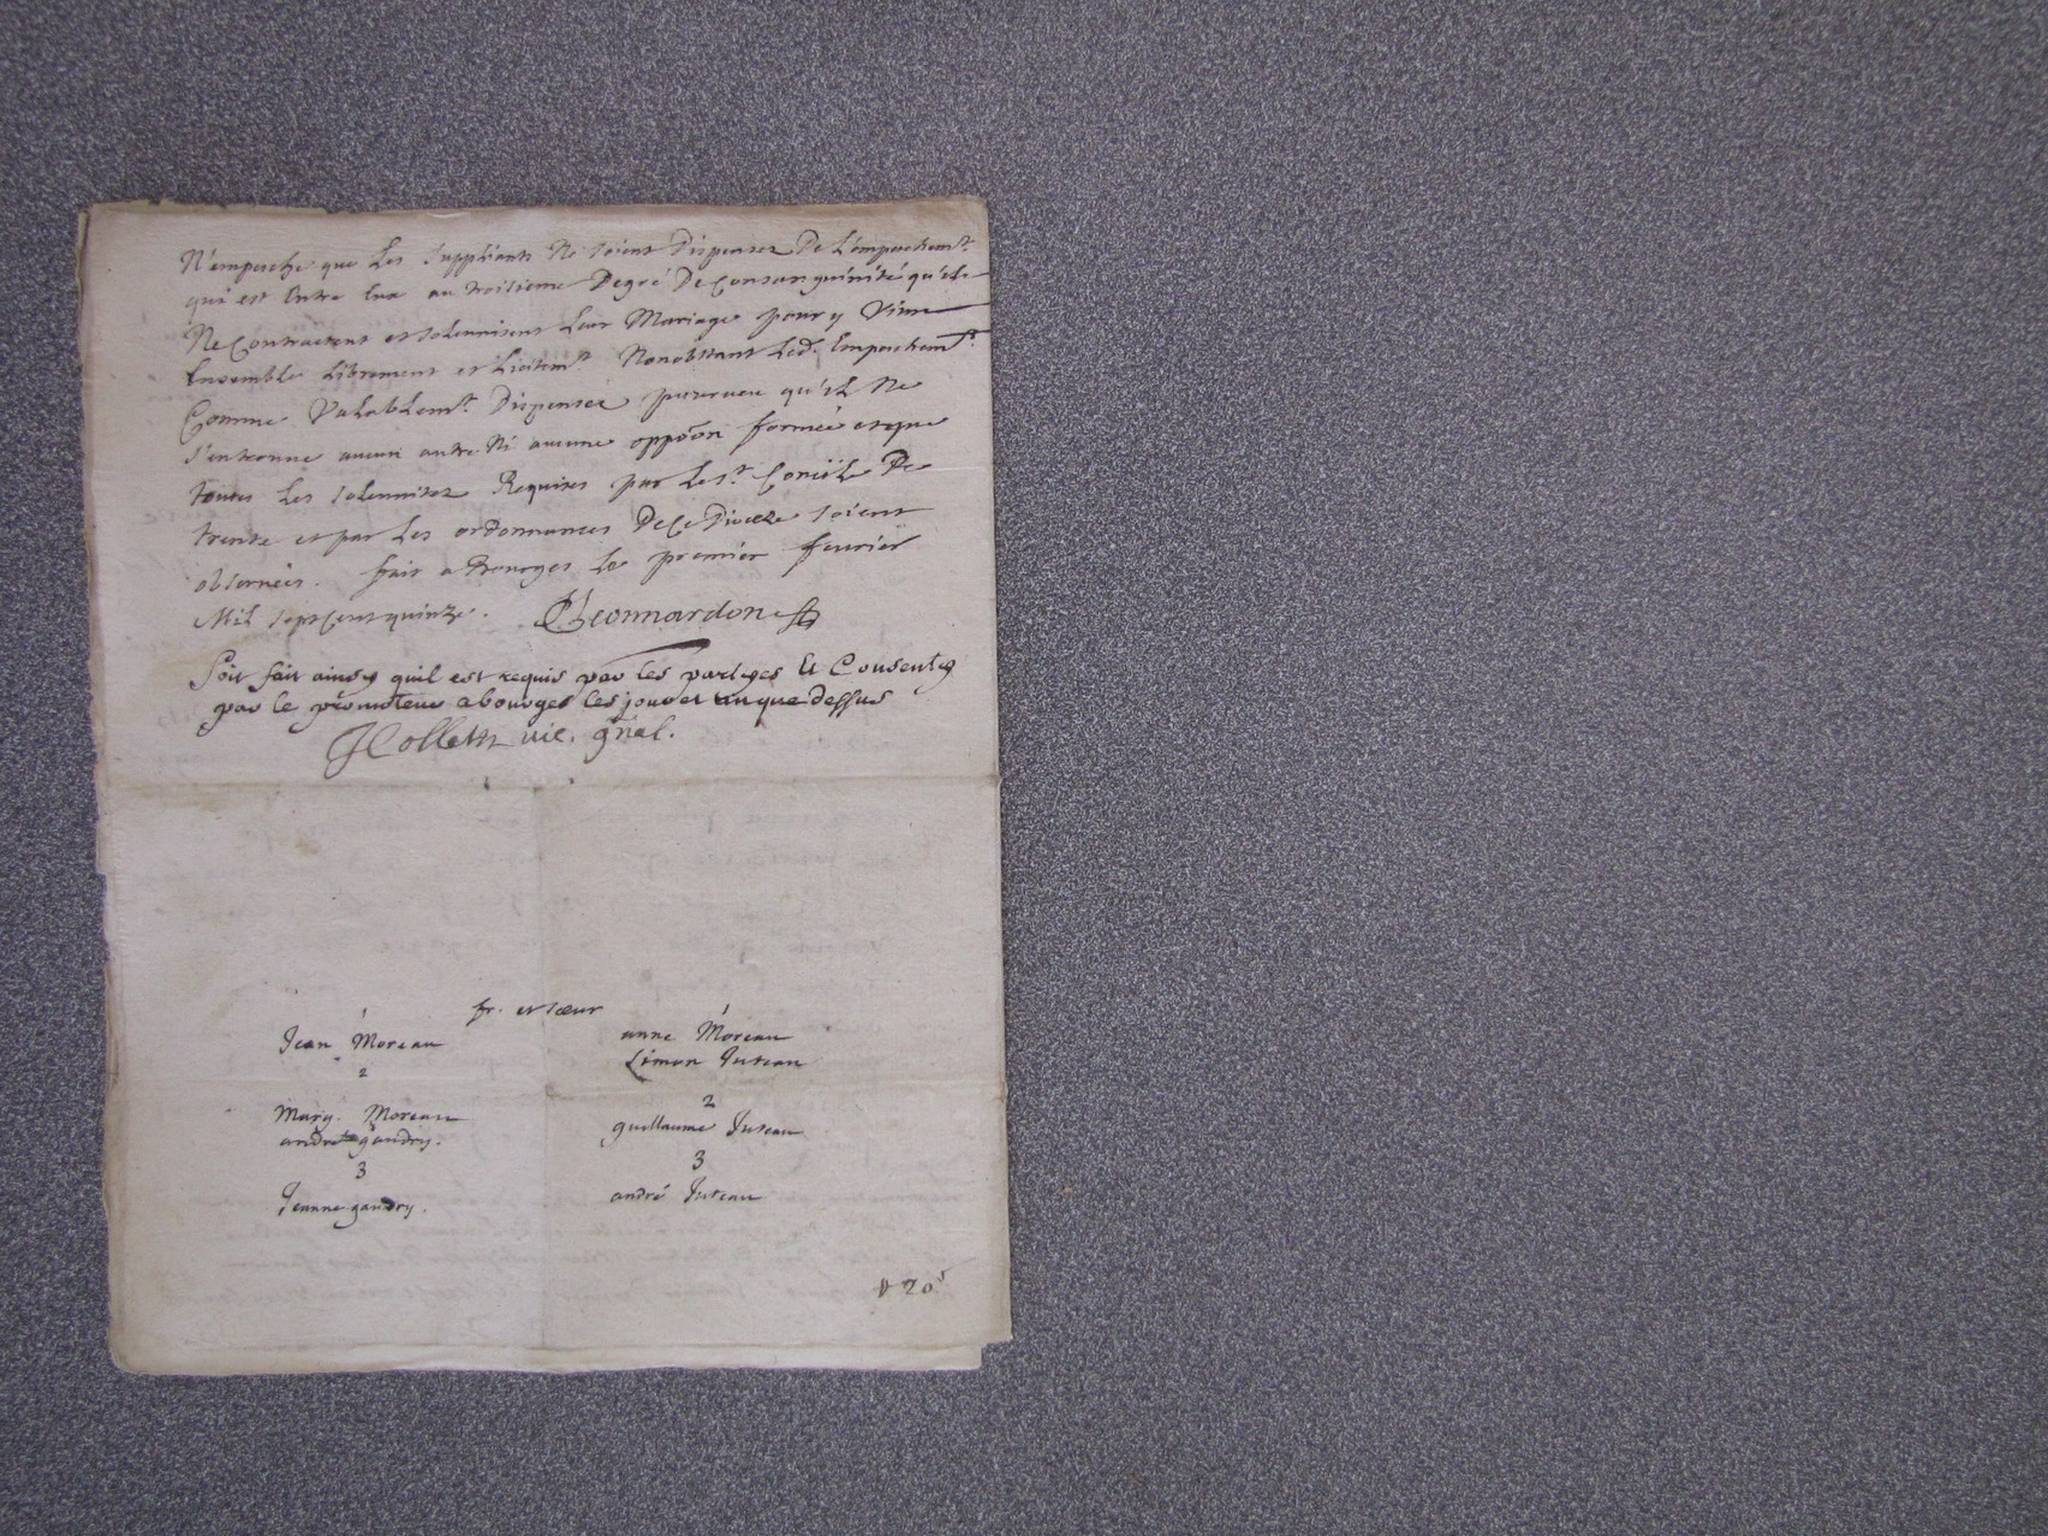 N'empesche que Les suppliants Ne soient Dispensez De L'empeschemt.
qui est Entre Eux au troisieme Degré De Consanguinité qu'ils
Ne Contractent et solennisent Leur Mariage pour y Vivre
Ensemble Librement et Licitemt. Nonobstant Led. Empeschemt.
Comme Valablemt. Dispensez pourveu qu'il Ne
s'en trouve aucun autre Ni aucune oppoōn formée et que
toutes Les solennitez Requises par Le st. Concile De
trente et par Les ordonnances De Ce Dioceze soient
observées. fait a Bourges Le premier feurier
Mil sept Cent quinze. Leonnardon
Soit fait ainsy quil est requis par les partyes Et Consenty
par le promoteur a bourges les jour et an que dessus
Colleth vic. gñal.
fr. et sœur
1 1
Jean Moreau anne Moreau
Simon Juteau
2 2
Mary Moreau guillaume Juteau
andré gaudry.
3 3
Jeanne gaudry. andré Juteau
20 s